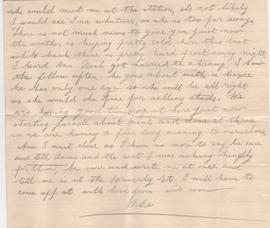 she could meet me at the station, its not likely
I would see I as whatever, as she is too far away.
There is not much news to give you just now
the weather is keeping pretty cold here this last
while back there is pretty hard frost every night
I heard Ann Neil got married to a tramp, I saw
the fellow often, he goes about with a
he has only one eye so she will be all right
as she would do fine for selling studs. We
are having a here just now
starting farnell about nine and done at three
so we are having a fine long evening to ourselves
Now I must close as I have no more to say be sure
and tell and the rest I was asking kindly
for them, be sure and write me at once and
tell me is at the Waverly St. I will have to
come off at with love from